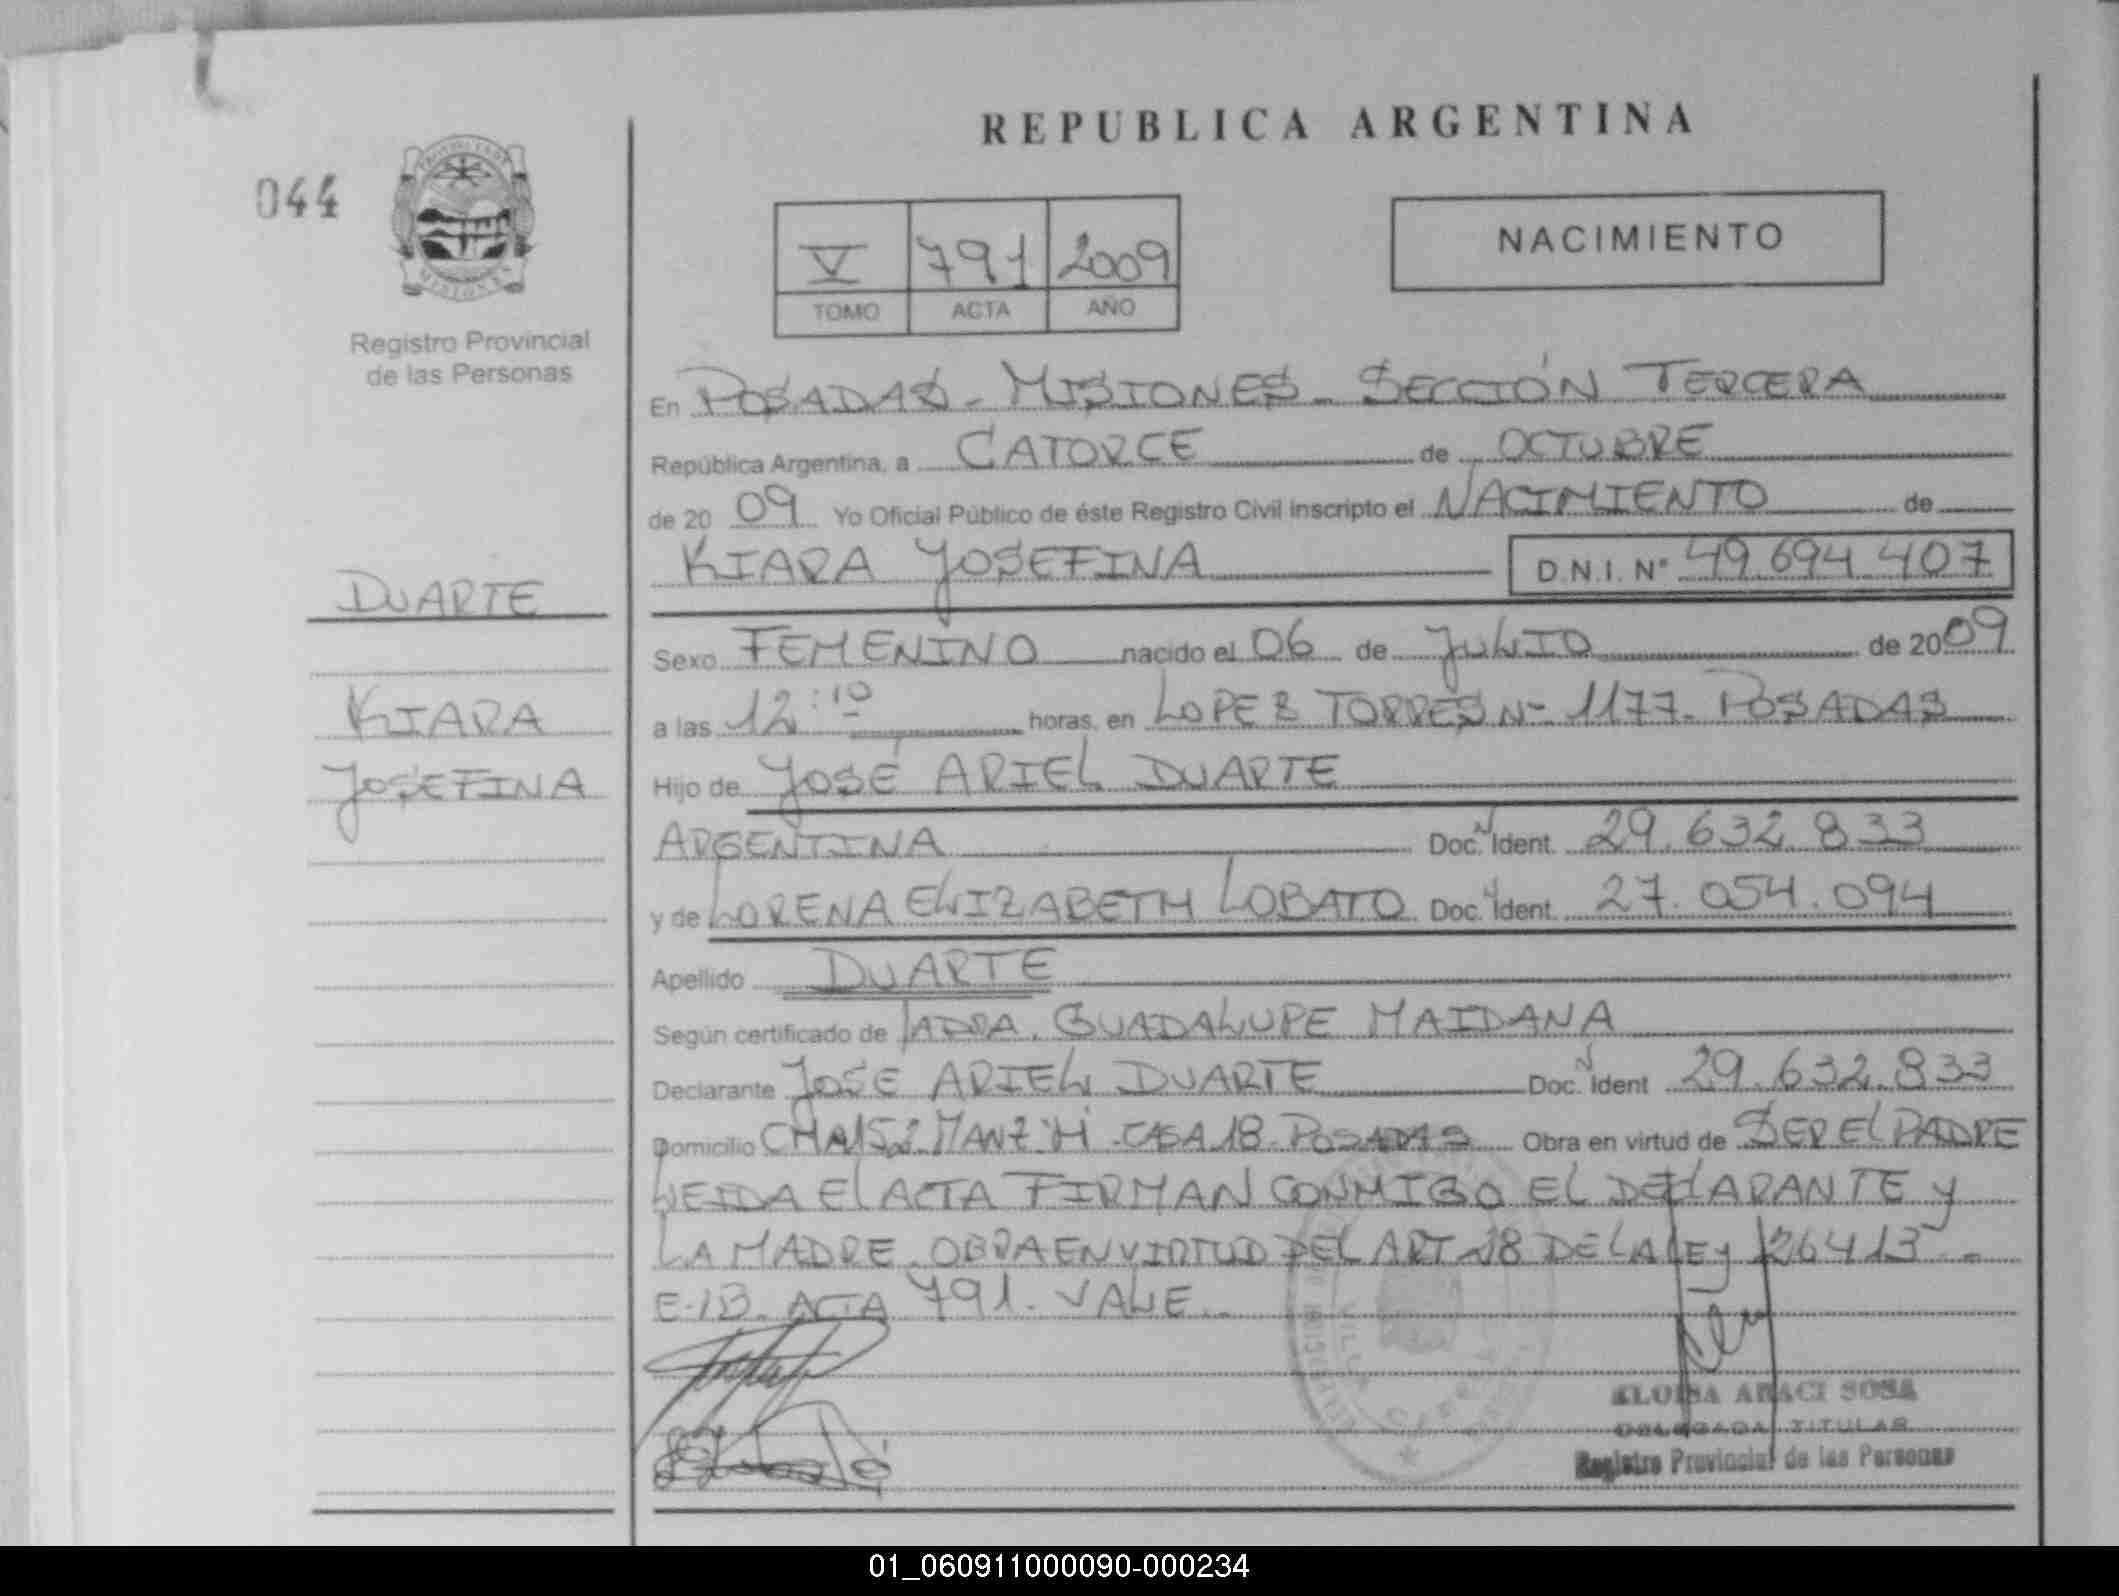 REPUBLICA ARGENTINA
044
V 791 2009
TOMO ACTA AÑO
NACIMIENTO
Registro Provincial
de las Personas
En POSADAS - MISIONES - SECCIÓN TERCERA
República Argentina, a CATORCE de OCTUBRE
de 2009 Yo Oficial Público de éste Registro Civil inscripto el NACIMIENTO de
KIARA JOSEFINA D.N.I. Nº 49.694.407
DUARTE
KIARA
JOSEFINA
Sexo FEMENINO nacido el 06 de JULIO de 2009
a las 12:10 horas, en LOPEZ TORRES Nº 1177 - POSADAS
Hijo de JOSÉ ARIEL DUARTE
ARGENTINA Doc. Ident. 29.632.833
y de LORENA ELIZABETH LOBATO Doc. Ident. 27.054.094
Apellido DUARTE
Según certificado de GUADALUPE MAIDANA
Declarante JOSE ARIEL DUARTE Doc. Ident 29.632.833
Domicilio MANZ "H" - CASA 18 - POSADAS Obra en virtud de SER EL PADRE
LEIDA EL ACTA FIRMAN CONMIGO EL DECLARANTE Y
LA MADRE. OBRA EN VIRTUD DEL ART 28 DE LA LEY 26413 -
ACTA 791. VALE.-
ELOISA ARACI SOSA
DELEGADA TITULAR
Registro Provincial de las Personas
01_060911000090-000234